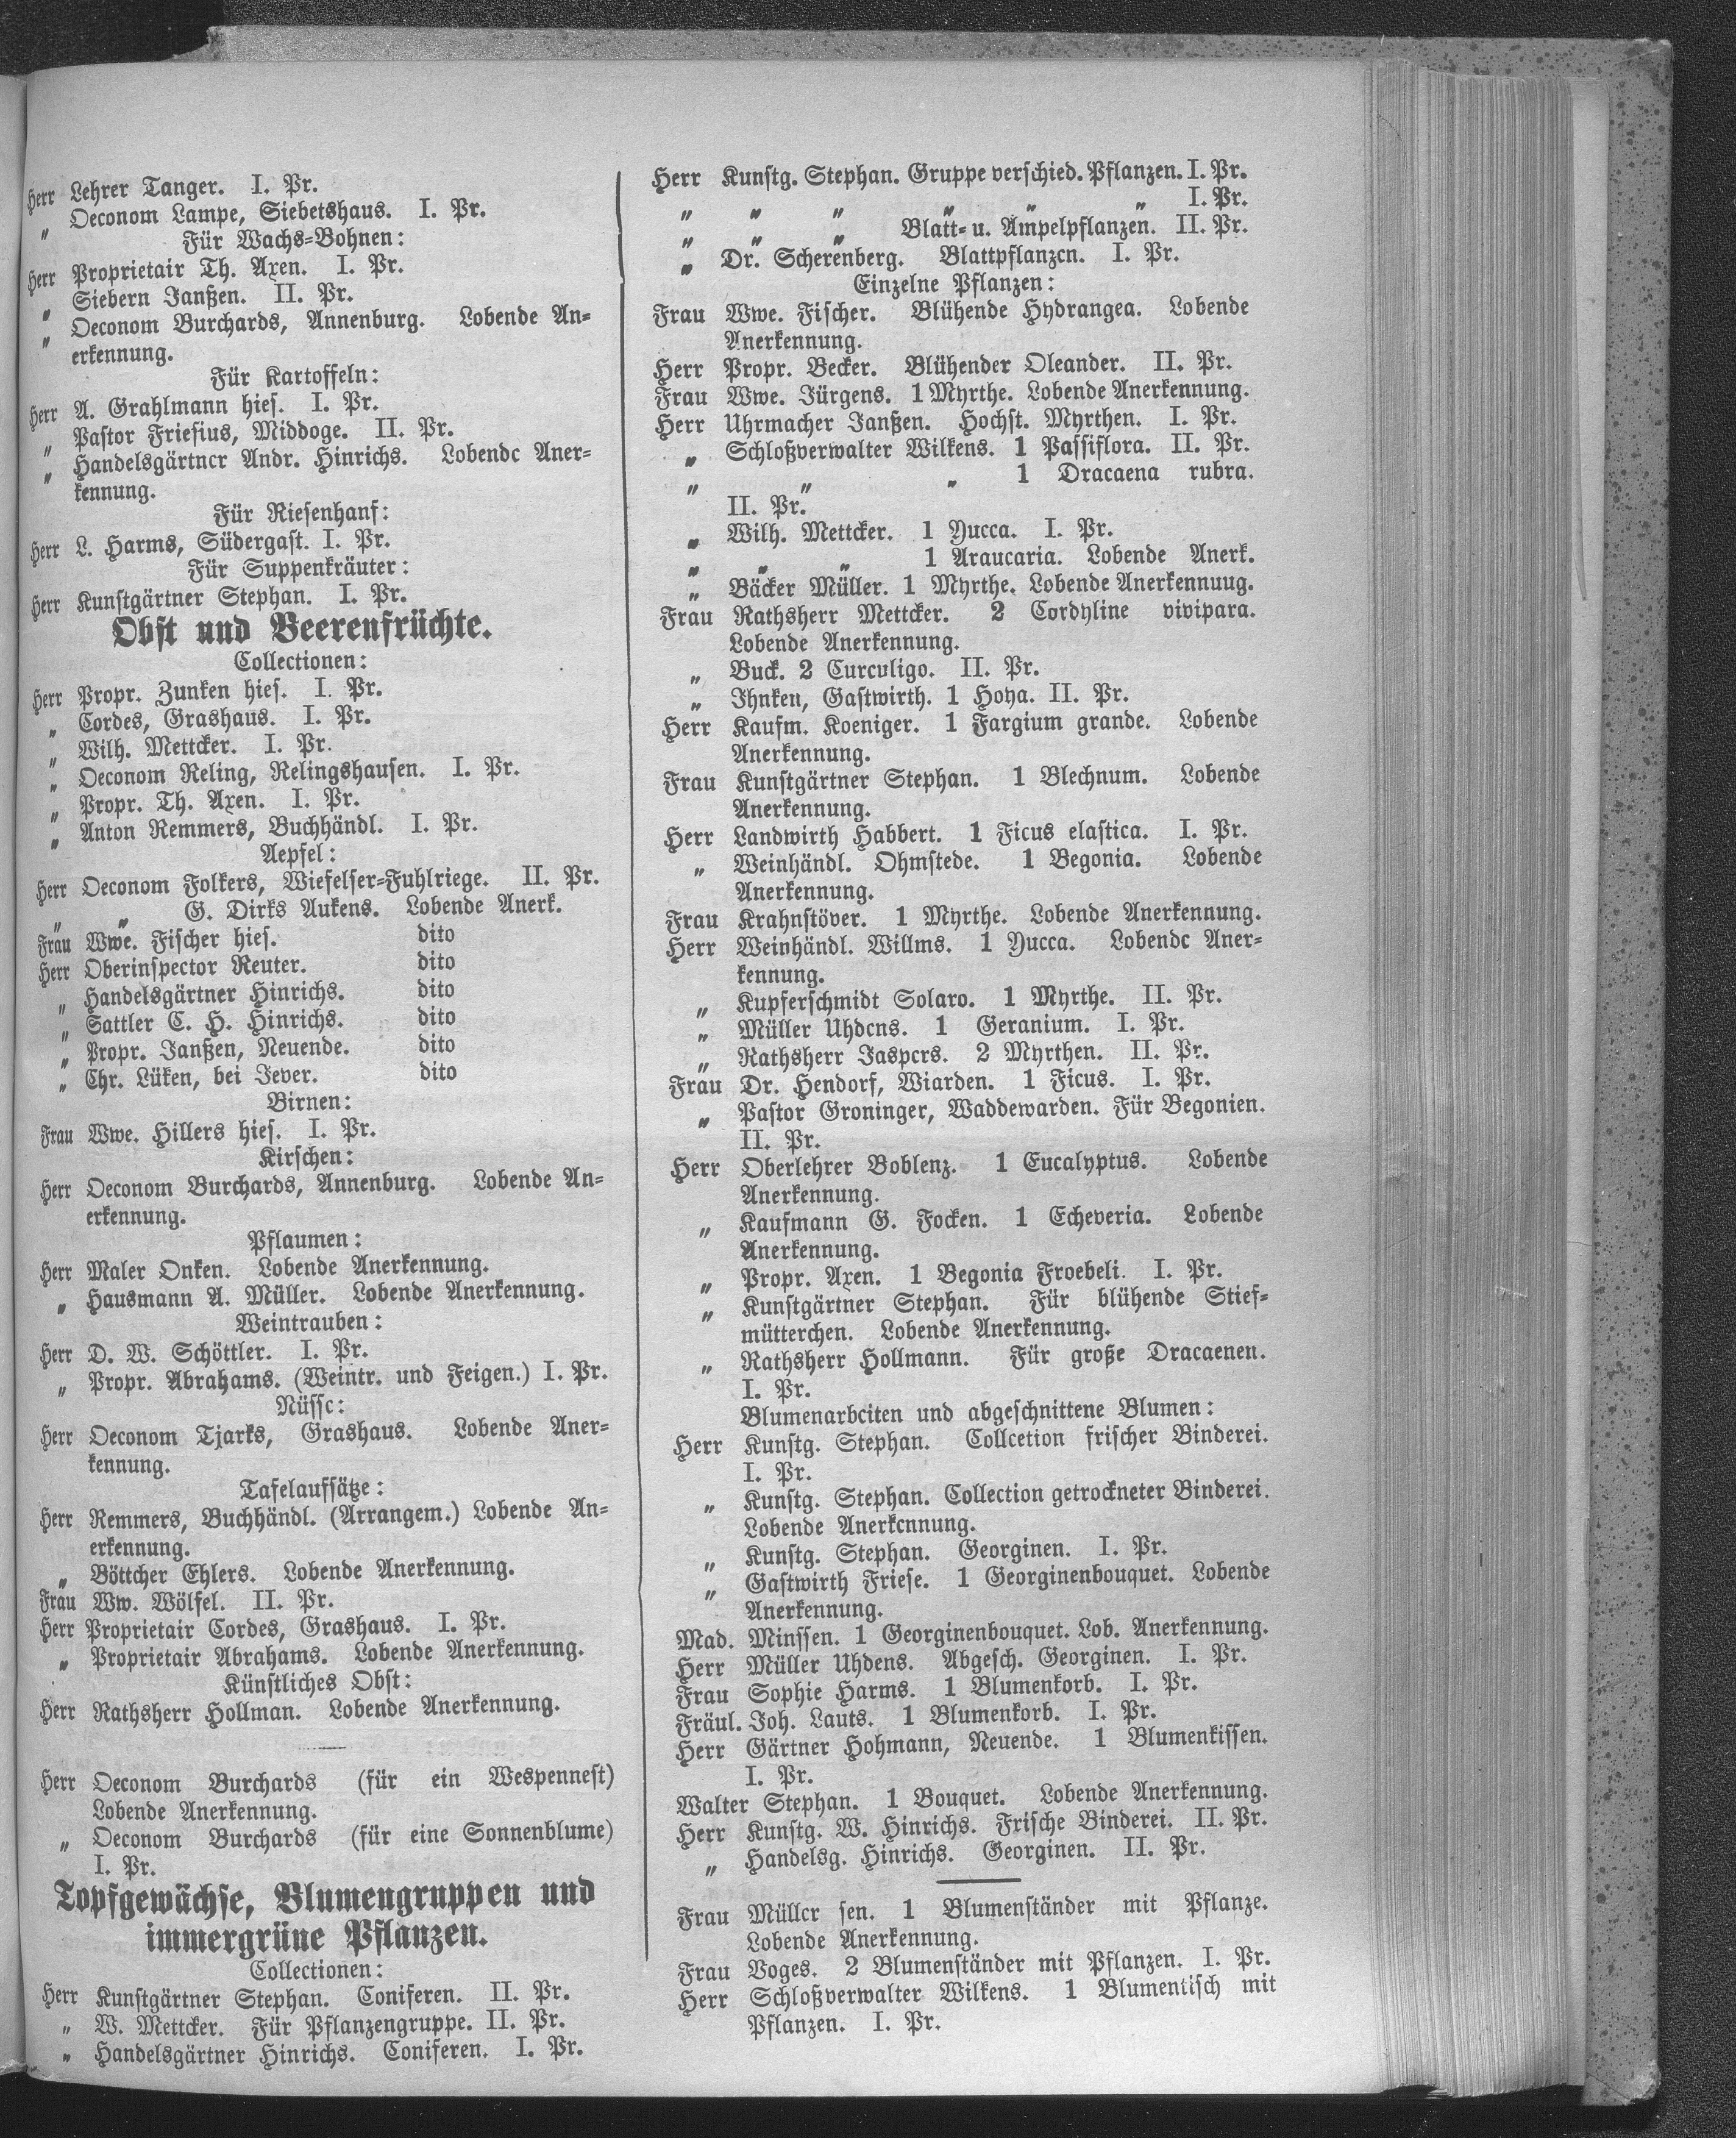 Herr Lehrer Tanger. I. Pr.
„ Oeconom Lampe, Siebetshaus. I. Pr.
Für Wachs-Bohnen:
Herr Proprietair Th. Axen. I. Pr.
„ Siebern Janßen. II. Pr.
„ Oeconom Burchards, Annenburg. Lobende An-
erkennung.
Für Kartoffeln:
Herr A. Grahlmann hies. I. Pr.
„ Pastor Friesius, Middoge. II. Pr.
„ Handelsgärtner Andr. Hinrichs. Lobende Aner-
kennung.
Für Riesenhanf:
Herr L. Harms, Südergast. I. Pr.
Für Suppenkräuter:
Herr Kunstgärtner Stephan. I. Pr.
Obst und Beerenfrüchte.
Collectionen:
Herr Propr. Zunken hies. I. Pr.
„ Cordes, Grashaus. I. Pr.
„ Wilh. Mettcker. I. Pr.
„ Oeconom Reling, Relingshausen. I. Pr.
„ Propr. Th. Axen. I. Pr.
„ Anton Remmers, Buchhändl. I. Pr.
Aepfel:
Herr Oeconom Folkers, Wiefelser-Fuhlriege. II. Pr.
„ „ G. Dirks Aukens. Lobende Anerk.
Frau Wwe. Fischer hies. dito
Herr Oberinspector Reuter. dito
„ Handelsgärtner Hinrichs. dito
„ Sattler C. H. Hinrichs. dito
„ Propr. Janßen, Neuende. dito
„ Chr. Lüken, bei Jever. dito
Birnen:
Frau Wwe. Hillers hies. I. Pr.
Kirschen:
Herr Oeconom Burchards, Annenburg. Lobende An-
erkennung.
Pflaumen:
Herr Maler Onken. Lobende Anerkennung.
„ Hausmann A. Müller. Lobende Anerkennung.
Weintrauben:
Herr D. W. Schöttler. I. Pr.
„ Propr. Abrahams. (Weintr. und Feigen.) I. Pr.
Nüsse:
Herr Oeconom Tjarks, Grashaus. Lobende Aner-
kennung.
Tafelaufsätze:
Herr Remmers, Buchhändl. (Arrangem.) Lobende An-
erkennung.
„ Böttcher Ehlers. Lobende Anerkennung.
Frau Ww. Wölfel. II. Pr.
Herr Proprietair Cordes, Grashaus. I. Pr.
„ Proprietair Abrahams. Lobende Anerkennung.
Künstliches Obst:
Herr Rathsherr Hollman. Lobende Anerkennung.
Herr Oeconom Burchards (für ein Wespennest)
Lobende Anerkennung.
„ Oeconom Burchards (für eine Sonnenblume)
I. Pr.
Topfgewächse, Blumengruppen und
immergrüne Pflanzen.
Collectionen:
Herr Kunstgärtner Stephan. Coniferen. II. Pr.
„ W. Mettcker. Für Pflanzengruppe. II. Pr.
„ Handelsgärtner Hinrichs. Coniferen. I. Pr.
Herr Kunstg. Stephan. Gruppe verschied. Pflanzen. I. Pr.
„ „ „ „ „ „ I. Pr.
„ „ „ Blatt- u. Ampelpflanzen. II. Pr.
„ Dr. Scherenberg. Blattpflanzen. I. Pr.
Einzelne Pflanzen:
Frau Wwe. Fischer. Blühende Hydrangea. Lobende
Anerkennung.
Herr Propr. Becker. Blühender Oleander. II. Pr.
Frau Wwe. Jürgens. 1 Myrthe. Lobende Anerkennung.
Herr Uhrmacher Janßen. Hochst. Myrthen. I. Pr.
„ Schloßverwalter Wilkens. 1 Passiflora. II. Pr.
„ „ „ 1 Dracaena rubra.
II. Pr.
„ Wilh. Mettcker. 1 Yucca. I. Pr.
„ „ „ 1 Araucaria. Lobende Anerk.
„ Bäcker Müller. 1 Myrthe. Lobende Anerkennuug.
Frau Rathsherr Mettcker. 2 Cordyline vivipara.
Lobende Anerkennung.
„ Buck. 2 Curculigo. II. Pr.
„ Ihnken, Gastwirth. 1 Hoya. II. Pr.
Herr Kaufm. Koeniger. 1 Fargium grande. Lobende
Anerkennung.
Frau Kunstgärtner Stephan. 1 Blechnum. Lobende
Anerkennung.
Herr Landwirth Habbert. 1 Ficus elastica. I. Pr.
„ Weinhändl. Ohmstede. 1 Begonia. Lobende
Anerkennung.
Frau Krahnstöver. 1 Myrthe. Lobende Anerkennung.
Herr Weinhändl. Willms. 1 Yucca. Lobende Aner-
kennung.
„ Kupferschmidt Solaro. 1 Myrthe. II. Pr.
„ Müller Uhdens. 1 Geranium. I. Pr.
„ Rathsherr Jaspers. 2 Myrthen. II. Pr.
Frau Dr. Hendorf, Wiarden. 1 Ficus. I. Pr.
„ Pastor Groninger, Waddewarden. Für Begonien.
II. Pr.
Herr Oberlehrer Boblenz. 1 Eucalyptus. Lobende
Anerkennung.
„ Kaufmann G. Focken. 1 Echeveria. Lobende
Anerkennung.
„ Propr. Axen. 1 Begonia Froebeli. I. Pr.
„ Kunstgärtner Stephan. Für blühende Stief-
mütterchen. Lobende Anerkennung.
„ Rathsherr Hollmann. Für große Dracaenen.
I. Pr.
Blumenarbeiten und abgeschnittene Blumen:
Herr Kunstg. Stephan. Collcetion frischer Binderei.
I. Pr.
„ Kunstg. Stephan. Collection getrockneter Binderei.
Lobende Anerkennung.
„ Kunstg. Stephan. Georginen. I. Pr.
„ Gastwirth Friese. 1 Georginenbouquet. Lobende
Anerkennung.
Mad. Minssen. 1 Georginenbouquet. Lob. Anerkennung.
Herr Müller Uhdens. Abgesch. Georginen. I. Pr.
Frau Sophie Harms. 1 Blumenkorb. I. Pr.
Fräul. Joh. Lauts. 1 Blumenkorb. I. Pr.
Herr Gärtner Hohmann, Neuende. 1 Blumenkissen.
I. Pr.
Walter Stephan. 1 Bouquet. Lobende Anerkennung.
Herr Kunstg. W. Hinrichs. Frische Binderei. II. Pr.
„ Handelsg. Hinrichs. Georginen. II. Pr.
Frau Müller sen. 1 Blumenständer mit Pflanze.
Lobende Anerkennung.
Frau Voges. 2 Blumenständer mit Pflanzen. I. Pr.
Herr Schloßverwalter Wilkens. 1 Blumentisch mit
Pflanzen. I. Pr.